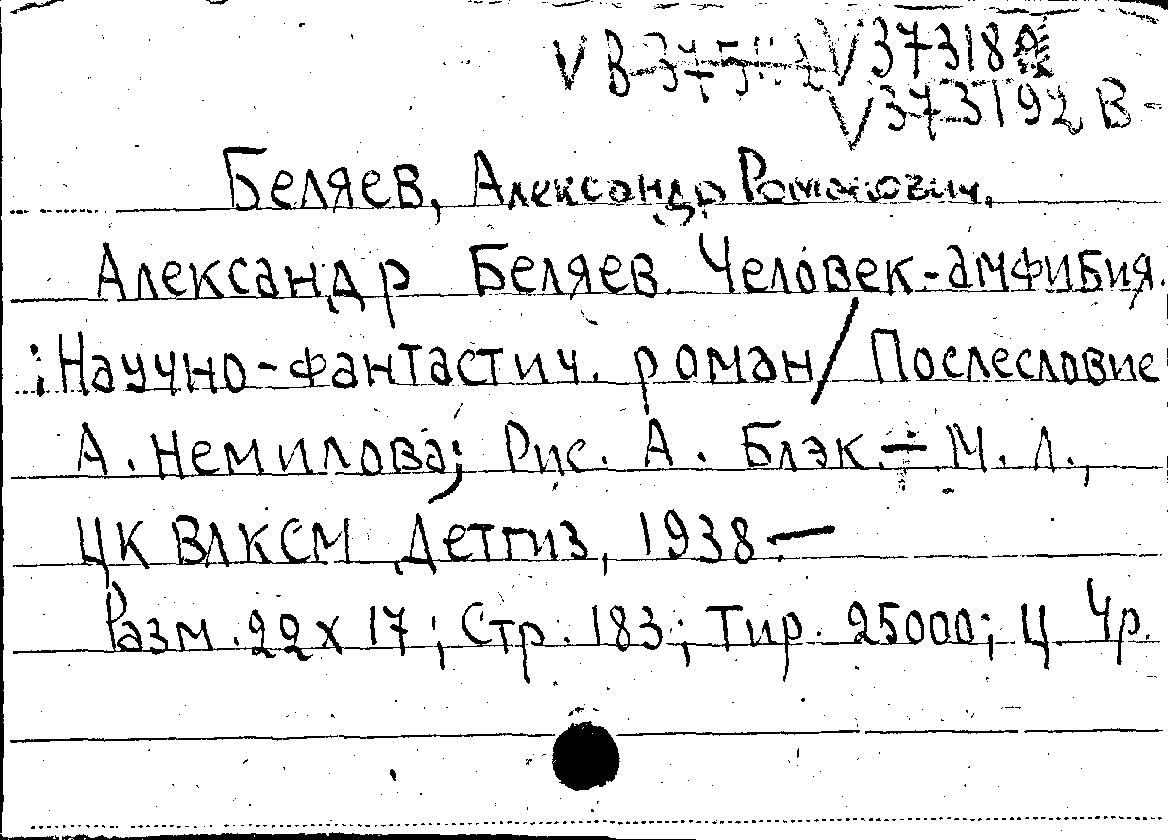 V 37318
V 373192 В-
Беляев, Александр Романович.
Александр Беляев. Человек-амфибия.
: Научно-фантастич. роман / Послесловие
А. Немилова; Рис. А. Блэк. - М. Л.,
ЦК ВЛКСМ Детгиз, 1938 —
Разм. 22х17; Стр. 183; Тир. 25000; Ц. 4р.